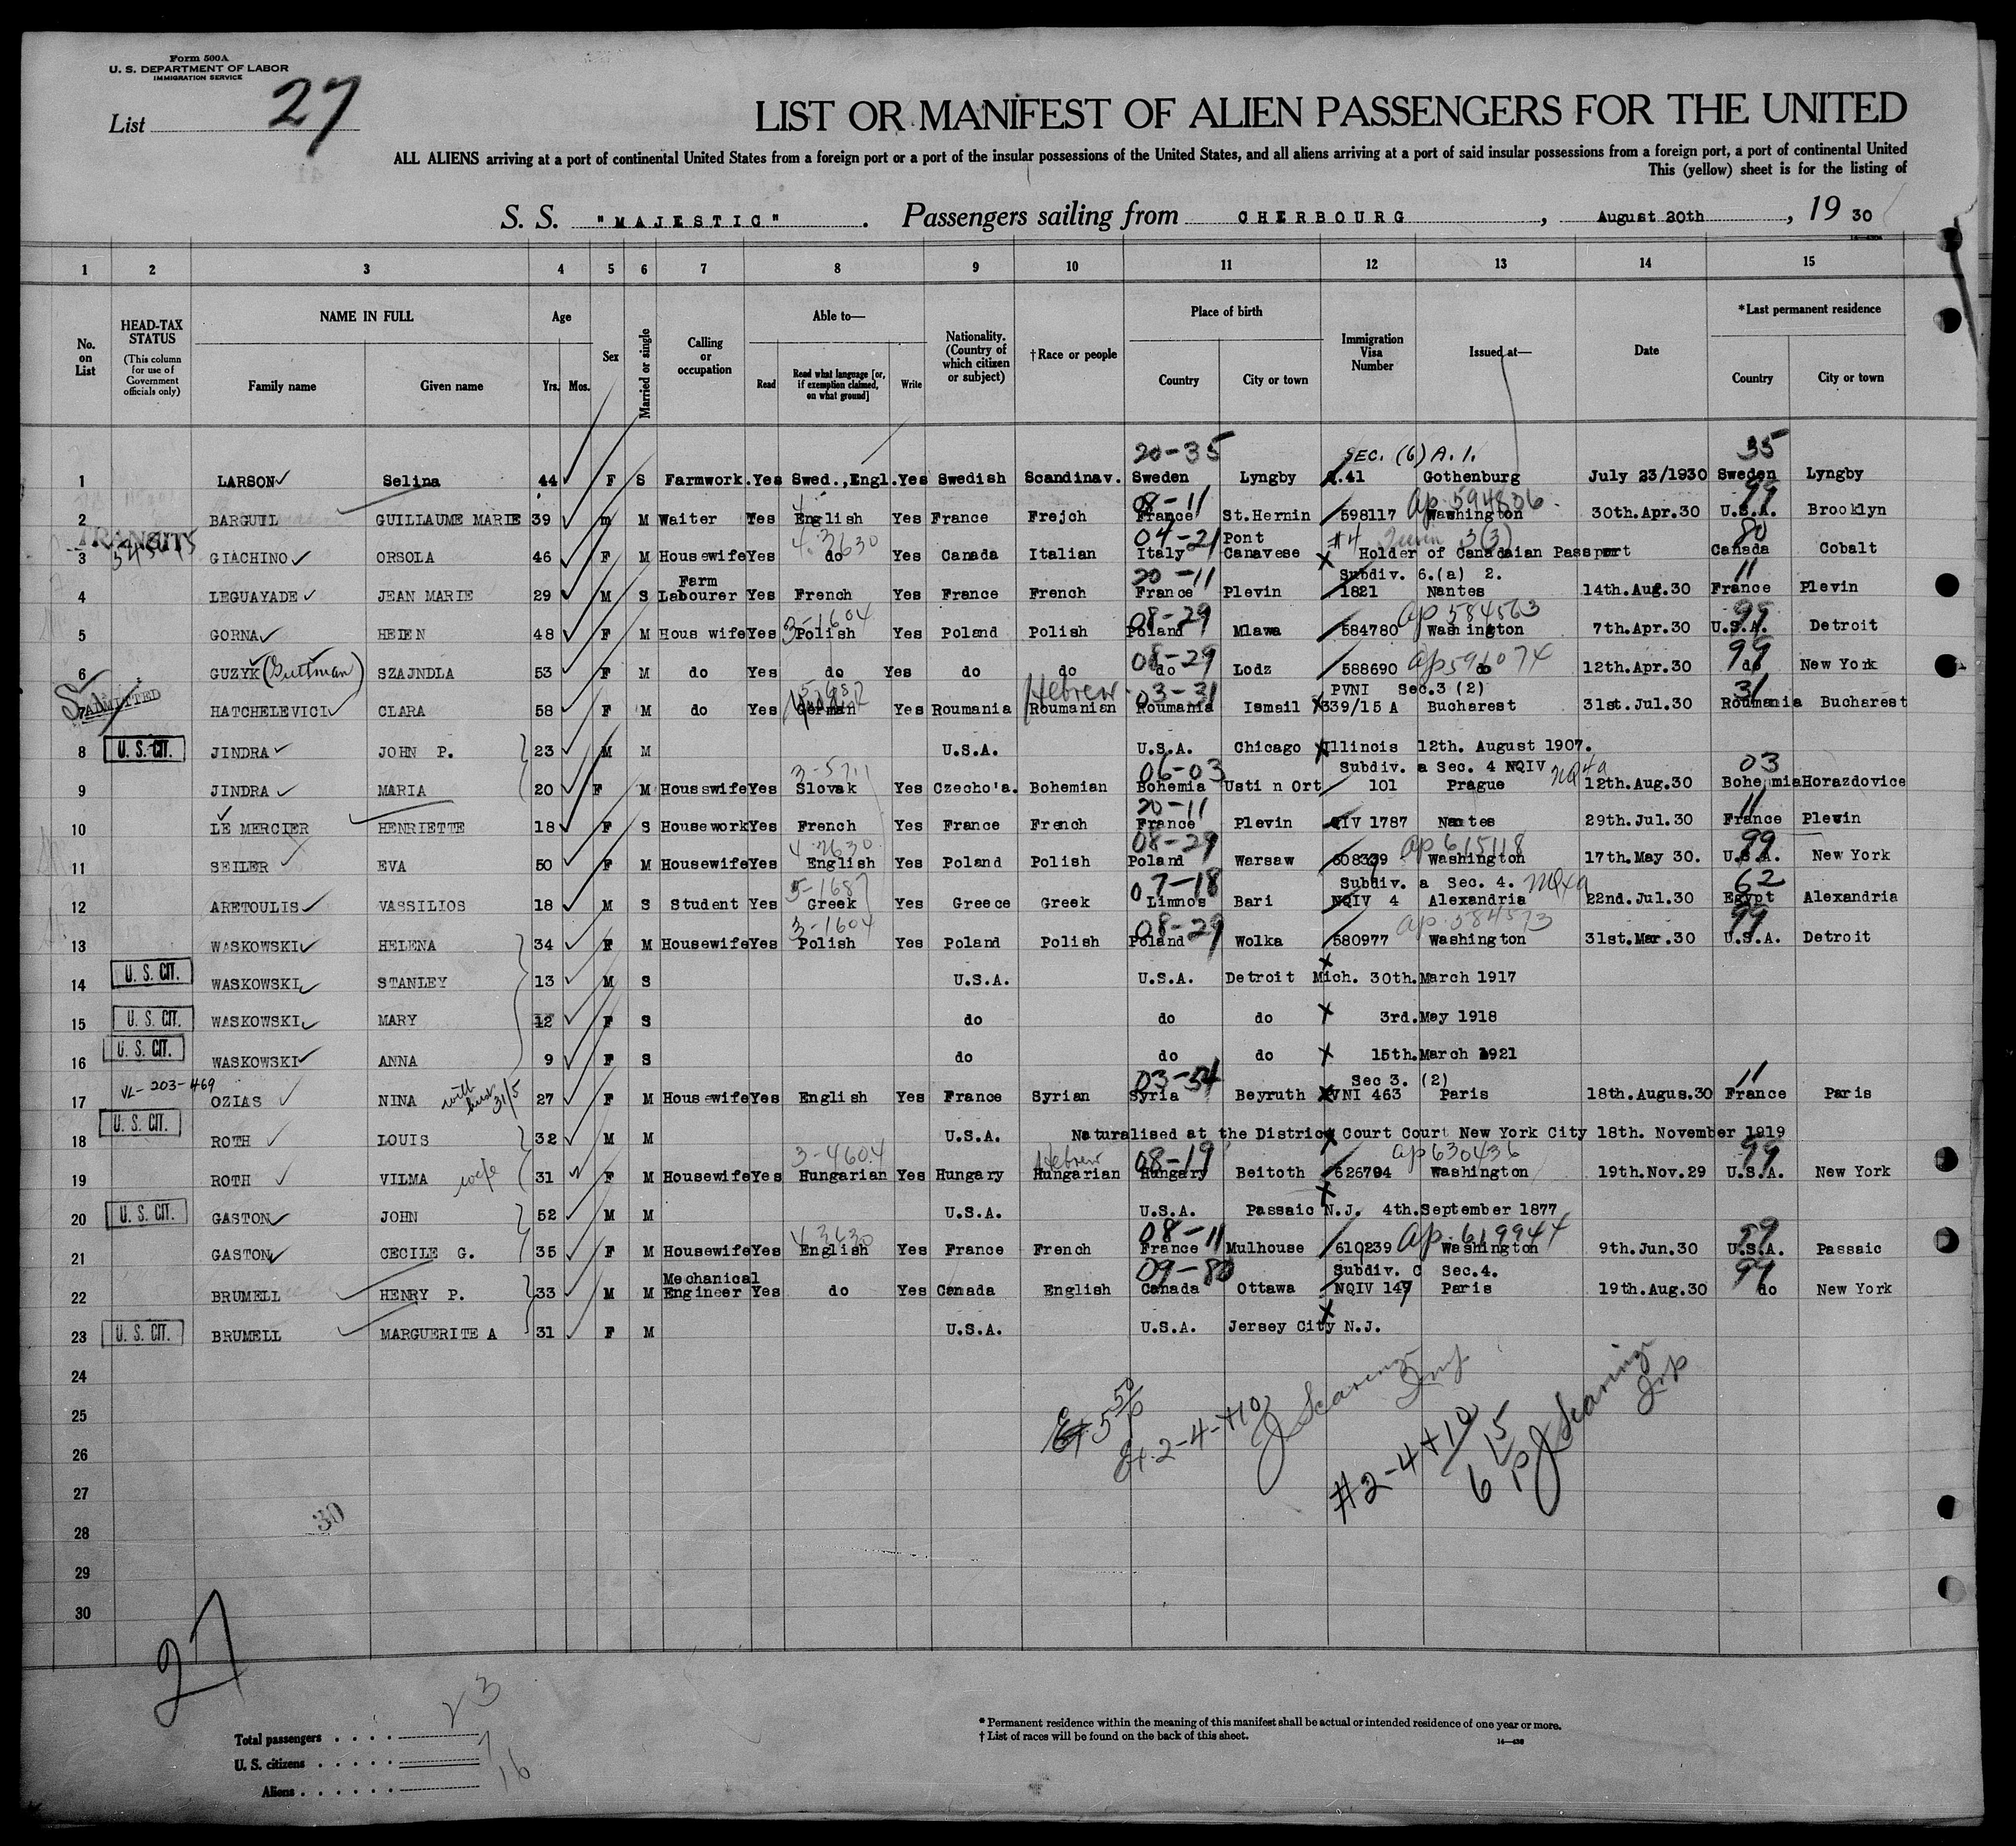 Form 500A
U. S. DEPARTMENT OF LABOR
IMMIGRATION SERVICE
List 27
LIST OR MANIFEST OF ALIEN PASSENGERS FOR THE UNITED
ALL ALIENS arriving at a port of continental United States from a foreign port or a port of the insular possessions of the United States, and all aliens arriving at a port of said insular possessions from a foreign port, a port of continental United
This (yellow) sheet is for the listing of
S. S. "MAJESTIC" . Passengers sailing from CHERBOURG , August 20th , 19 30
1 2 3 4 5 6 7 8 9 10 11 12 13 14 15
No. on List
HEAD-TAX STATUS
(This column for use of Government officials only)
NAME IN FULL
Family name Given name
Age
Yrs. Mos.
Sex
Married or single
Calling or occupation
Able to—
Read
Read what language [or, if exemption claimed, on what ground]
Write
Nationality. (Country of which citizen or subject)
†Race or people
Place of birth
Country City or town
Immigration Visa Number
Issued at—
Date
*Last permanent residence
Country City or town
20-35 SEC. (6) A. 1. 35
1 LARSON Selina 44 F S Farmwork. Yes Swed.,Engl. Yes Swedish Scandinav. Sweden Lyngby .41 Gothenburg July 23/1930 Sweden Lyngby
08-11 ap 594806 99
2 BARGUIL GUILLAUME MARIE 39 m M Waiter Yes English Yes France Frejch France St.Hernin 598117 Washington 30th.Apr.30 U.S.A. Brooklyn
TRANSITS 4.3630 04-21 Pont #4 3(3) 80
3 GIACHINO ORSOLA 46 F M Housewife Yes do Yes Canada Italian Italy Canavese Holder of Canadaian Passport Canada Cobalt
Farm 20-11 Subdiv. 6.(a) 2. 11
4 LEGUAYADE JEAN MARIE 29 M S Labourer Yes French Yes France French France Plevin 1821 Nantes 14th.Aug.30 France Plevin
3-1604 08-29 ap 584563 99
5 GORNA HEIEN 48 F M Hous wife Yes Polish Yes Poland Polish Poland Mlawa 584780 Washington 7th.Apr.30 U.S.A. Detroit
08-29 ap 591074 99
6 GUZYK (Guttman) SZAJNDLA 53 F M do Yes do Yes do do do Lodz 588690 do 12th.Apr.30 do New York
ADMITTED Hebrew 03-31 PVNI Sec.3 (2) 31
7 HATCHELEVICI CLARA 58 F M do Yes German Yes Roumania Roumanian Roumania Ismail 339/15 A Bucharest 31st.Jul.30 Roumania Bucharest
8 U. S. CIT. JINDRA JOHN P. 23 M M U.S.A. U.S.A. Chicago Illinois 12th. August 1907.
3-5711 06-03 Subdiv. a Sec. 4 NQIV NQ4a 03
9 JINDRA MARIA 20 F M Housswife Yes Slovak Yes Czecho'a. Bohemian Bohemia Usti n Ort 101 Prague 12th.Aug.30 Bohemia Horazdovice
20-11 11
10 LE MERCIER HENRIETTE 18 F S Housework Yes French Yes France French France Plevin QIV 1787 Nantes 29th.Jul.30 France Plevin
4.2630 08-29 ap 615118 99
11 SEILER EVA 50 F M Housewife Yes English Yes Poland Polish Poland Warsaw 608339 Washington 17th.May 30. U.S.A. New York
5-1687 07-18 Subdiv. a Sec. 4. NQ4a 62
12 ARETOULIS VASSILIOS 18 M S Student Yes Greek Yes Greece Greek Limnos Bari NQIV 4 Alexandria 22nd.Jul.30 Egypt Alexandria
3-1604 08-29 ap.584573 99
13 WASKOWSKI HELENA 34 F M Housewife Yes Polish Yes Poland Polish Poland Wolka 580977 Washington 31st.Mar.30 U.S.A. Detroit
14 U. S. CIT. WASKOWSKI STANLEY 13 M S U.S.A. U.S.A. Detroit Mich. 30th.March 1917
15 U. S. CIT. WASKOWSKI MARY 12 F S do do do 3rd.May 1918
16 U. S. CIT. WASKOWSKI ANNA 9 F S do do do 15th.March 1921
VL-203-469 with husb 31/5 03-54 Sec 3. (2) 11
17 OZIAS NINA 27 F M Housewife Yes English Yes France Syrian Syria Beyruth PVNI 463 Paris 18th.Augus.30 France Paris
18 U. S. CIT. ROTH LOUIS 32 M M U.S.A. Naturalised at the District Court Court New York City 18th. November 1919
3-4604 Hebrew 08-19 ap630436 99
19 ROTH VILMA wife 31 F M Housewife Yes Hungarian Yes Hungary Hungarian Hungary Beitoth 626794 Washington 19th.Nov.29 U.S.A. New York
20 U. S. CIT. GASTON JOHN 52 M M U.S.A. U.S.A. Passaic N.J. 4th.September 1877
4 3630 08-11 ap. 619944 99
21 GASTON CECILE G. 35 F M Housewife Yes English Yes France French France Mulhouse 610239 Washington 9th.Jun.30 U.S.A. Passaic
Mechanical 09-80 Subdiv. C Sec.4. 99
22 BRUMELL HENRY P. 33 M M Engineer Yes do Yes Canada English Canada Ottawa NQIV 149 Paris 19th.Aug.30 do New York
23 U. S. CIT. BRUMELL MARGUERITE A 31 F M U.S.A. U.S.A. Jersey City N.J.
24
25
26
27
28
29
30
#2-4+10
30
27
Total passengers 23
U. S. citizens 7
Aliens 16
* Permanent residence within the meaning of this manifest shall be actual or intended residence of one year or more.
† List of races will be found on the back of this sheet.